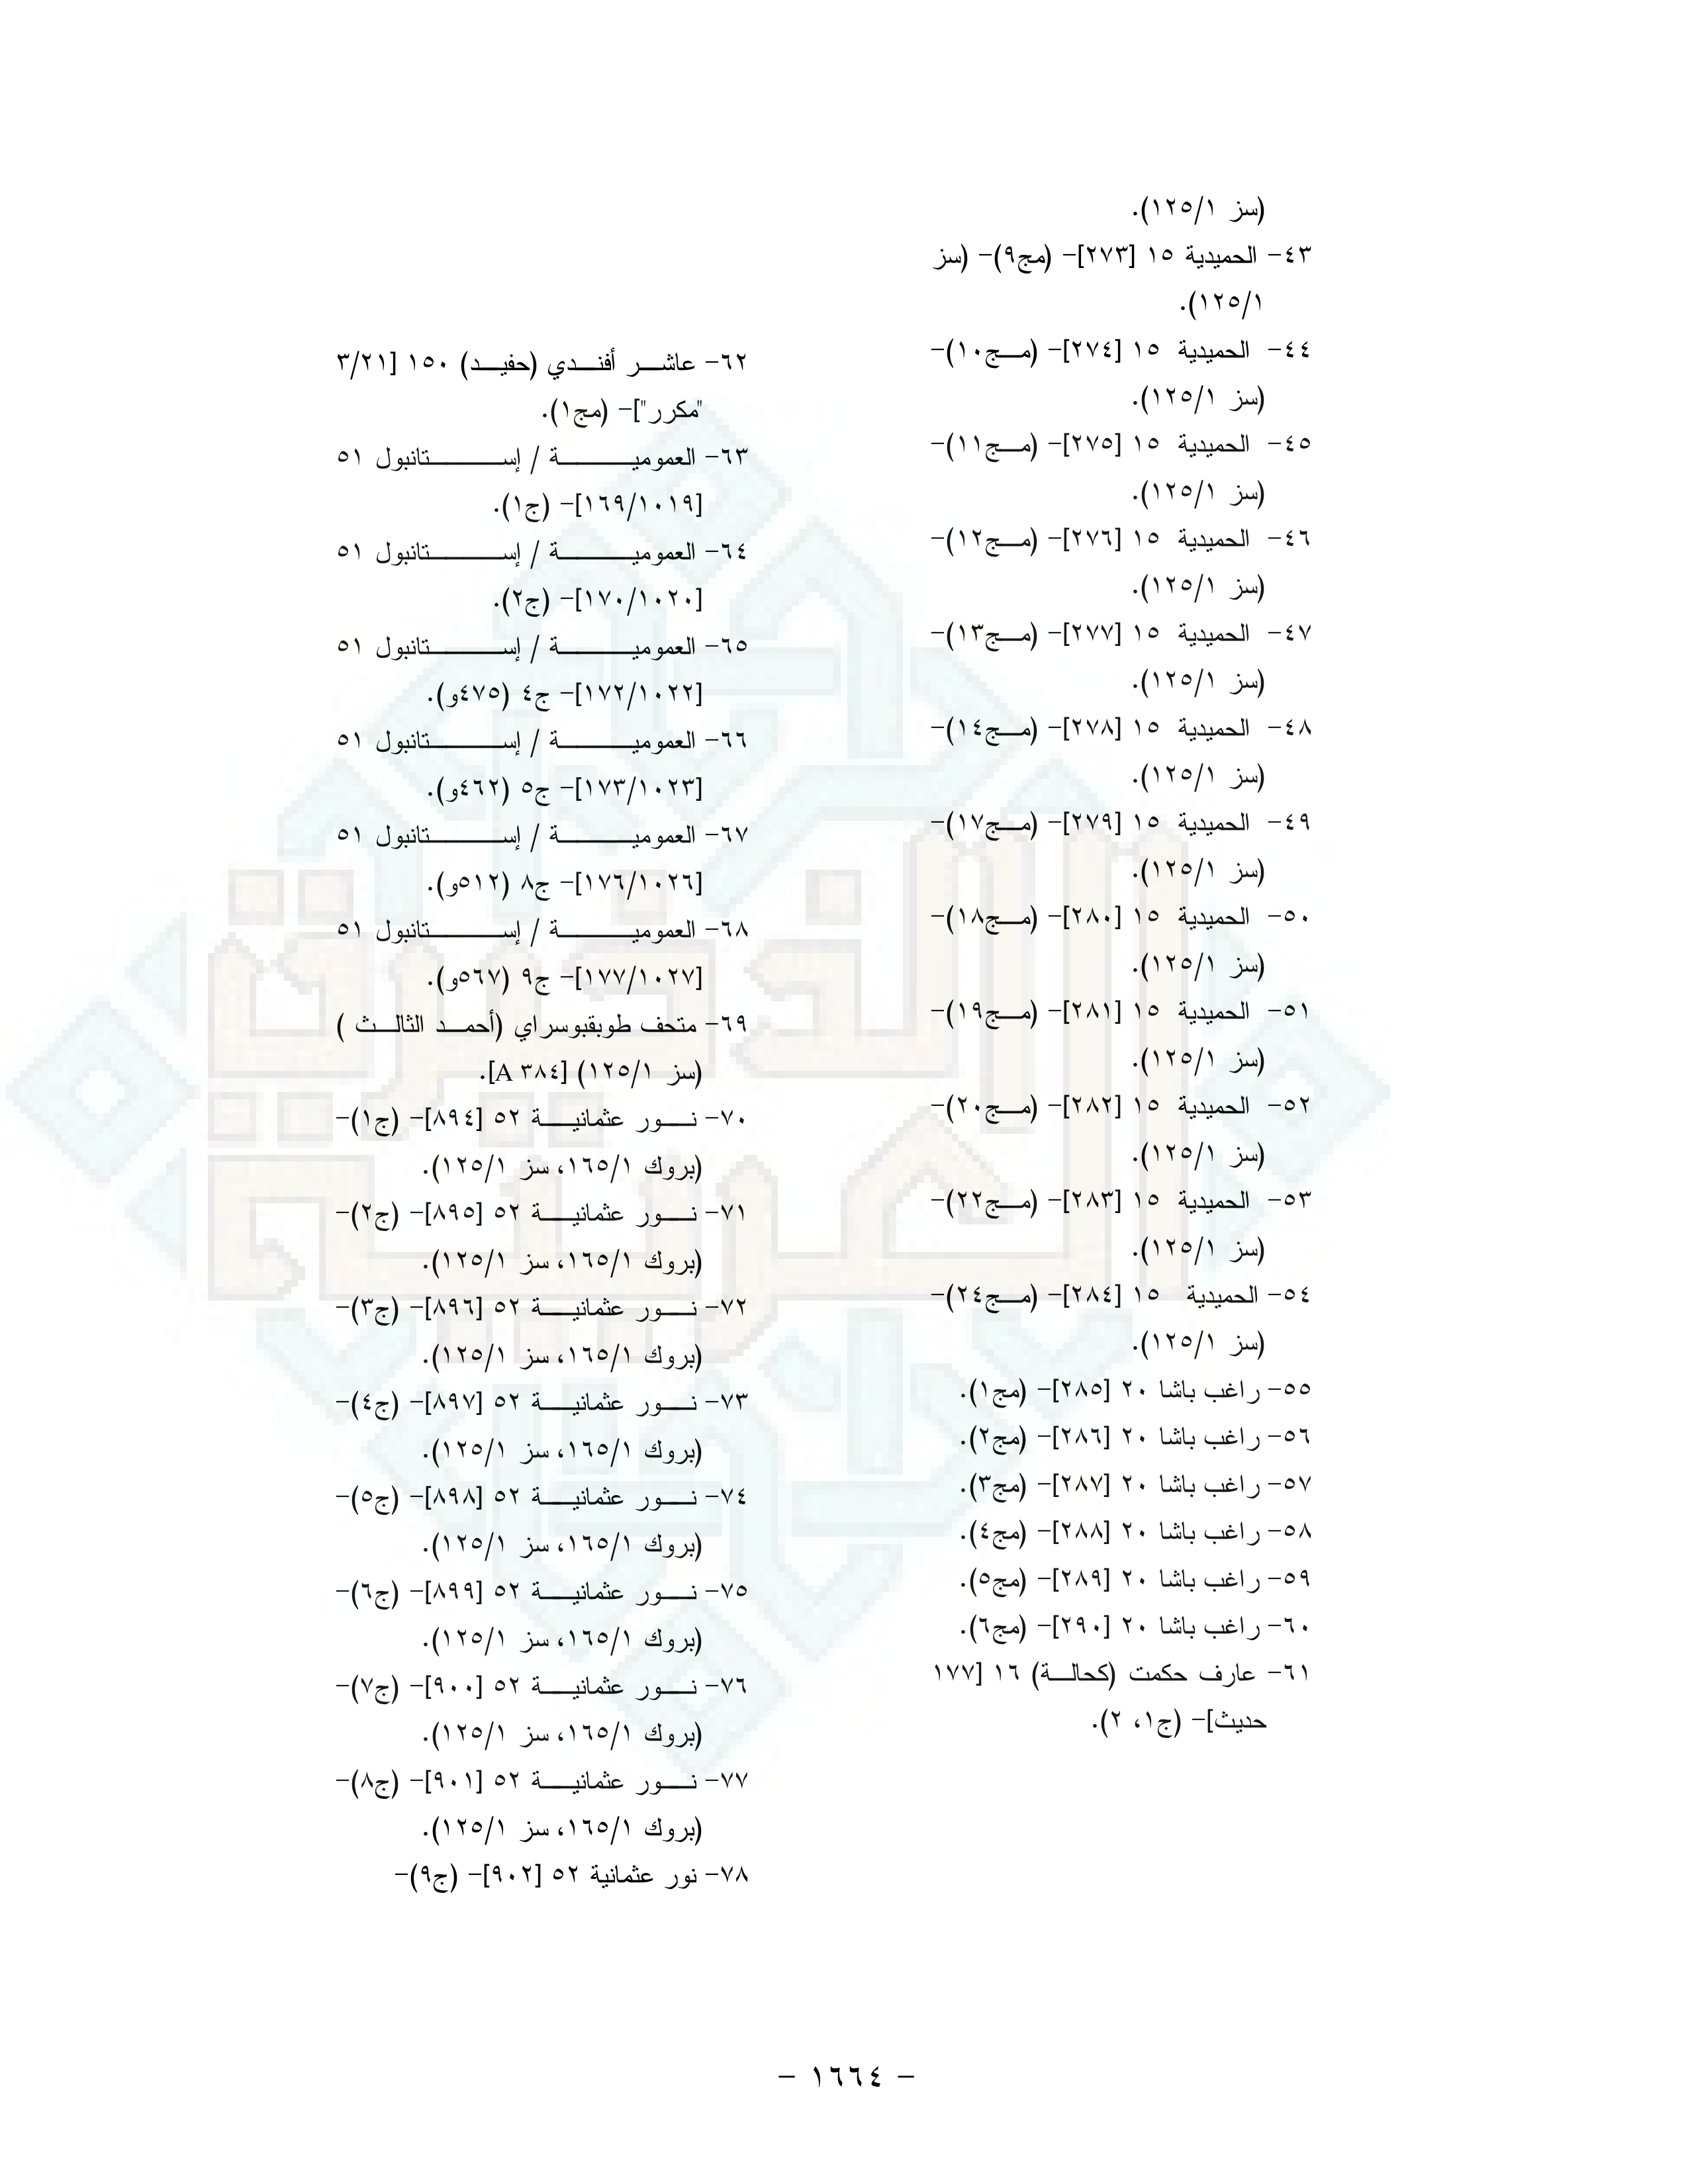 (سز ١/١٢٥).
٤٣- الحميدية ١٥ [٢٧٣]- (مج٩)- (سز
١/١٢٥).
٤٤- الحميدية ١٥ [٢٧٤]- (مج١٠)-
(سز ١/١٢٥).
٤٥- الحميدية ١٥ [٢٧٥]- (مج١١)-
(سز ١/١٢٥).
٤٦- الحميدية ١٥ [٢٧٦]- (مج١٢)-
(سز ١/١٢٥).
٤٧- الحميدية ١٥ [٢٧٧]- (مج١٣)-
(سز ١/١٢٥).
٤٨- الحميدية ١٥ [٢٧٨]- (مج١٤)-
(سز ١/١٢٥).
٤٩- الحميدية ١٥ [٢٧٩]- (مج١٧)-
(سز ١/١٢٥).
٥٠- الحميدية ١٥ [٢٨٠]- (مج١٨)-
(سز ١/١٢٥).
٥١- الحميدية ١٥ [٢٨١]- (مج١٩)-
(سز ١/١٢٥).
٥٢- الحميدية ١٥ [٢٨٢]- (مج٢٠)-
(سز ١/١٢٥).
٥٣- الحميدية ١٥ [٢٨٣]- (مج٢٢)-
(سز ١/١٢٥).
٥٤- الحميدية ١٥ [٢٨٤]- (مج٢٤)-
(سز ١/١٢٥).
٥٥- راغب باشا ٢٠ [٢٨٥]- (مج١).
٥٦- راغب باشا ٢٠ [٢٨٦]- (مج٢).
٥٧- راغب باشا ٢٠ [٢٨٧]- (مج٣).
٥٨- راغب باشا ٢٠ [٢٨٨]- (مج٤).
٥٩- راغب باشا ٢٠ [٢٨٩]- (مج٥).
٦٠- راغب باشا ٢٠ [٢٩٠]- (مج٦).
٦١- عارف حكمت (كحالة) ١٦ [١٧٧
حديث]- (ج١، ٢).
٦٢- عاشر أفندي (حفيد) ١٥٠ [٣/٢١
"مكرر"]- (مج١).
٦٣- العمومية / إستانبول ٥١
[١٦٩/١٠١٩]- (ج١).
٦٤- العمومية / إستانبول ٥١
[١٧٠/١٠٢٠]- (ج٢).
٦٥- العمومية / إستانبول ٥١
[١٧٢/١٠٢٢]- ج٤ (٤٧٥و).
٦٦- العمومية / إستانبول ٥١
[١٧٣/١٠٢٣]- ج٥ (٤٦٢و).
٦٧- العمومية / إستانبول ٥١
[١٧٦/١٠٢٦]- ج٨ (٥١٢و).
٦٨- العمومية / إستانبول ٥١
[١٧٧/١٠٢٧]- ج٩ (٥٦٧و).
٦٩- متحف طوبقبوسراي (أحمد الثالث )
(سز ١/١٢٥) [A ٣٨٤].
٧٠- نور عثمانية ٥٢ [٨٩٤]- (ج١)-
(بروك ١/١٦٥، سز ١/١٢٥).
٧١- نور عثمانية ٥٢ [٨٩٥]- (ج٢)-
(بروك ١/١٦٥، سز ١/١٢٥).
٧٢- نور عثمانية ٥٢ [٨٩٦]- (ج٣)-
(بروك ١/١٦٥، سز ١/١٢٥).
٧٣- نور عثمانية ٥٢ [٨٩٧]- (ج٤)-
(بروك ١/١٦٥، سز ١/١٢٥).
٧٤- نور عثمانية ٥٢ [٨٩٨]- (ج٥)-
(بروك ١/١٦٥، سز ١/١٢٥).
٧٥- نور عثمانية ٥٢ [٨٩٩]- (ج٦)-
(بروك ١/١٦٥، سز ١/١٢٥).
٧٦- نور عثمانية ٥٢ [٩٠٠]- (ج٧)-
(بروك ١/١٦٥، سز ١/١٢٥).
٧٧- نور عثمانية ٥٢ [٩٠١]- (ج٨)-
(بروك ١/١٦٥، سز ١/١٢٥).
٧٨- نور عثمانية ٥٢ [٩٠٢]- (ج٩)-
- ١٦٦٤ -
الذخيرة
العربية